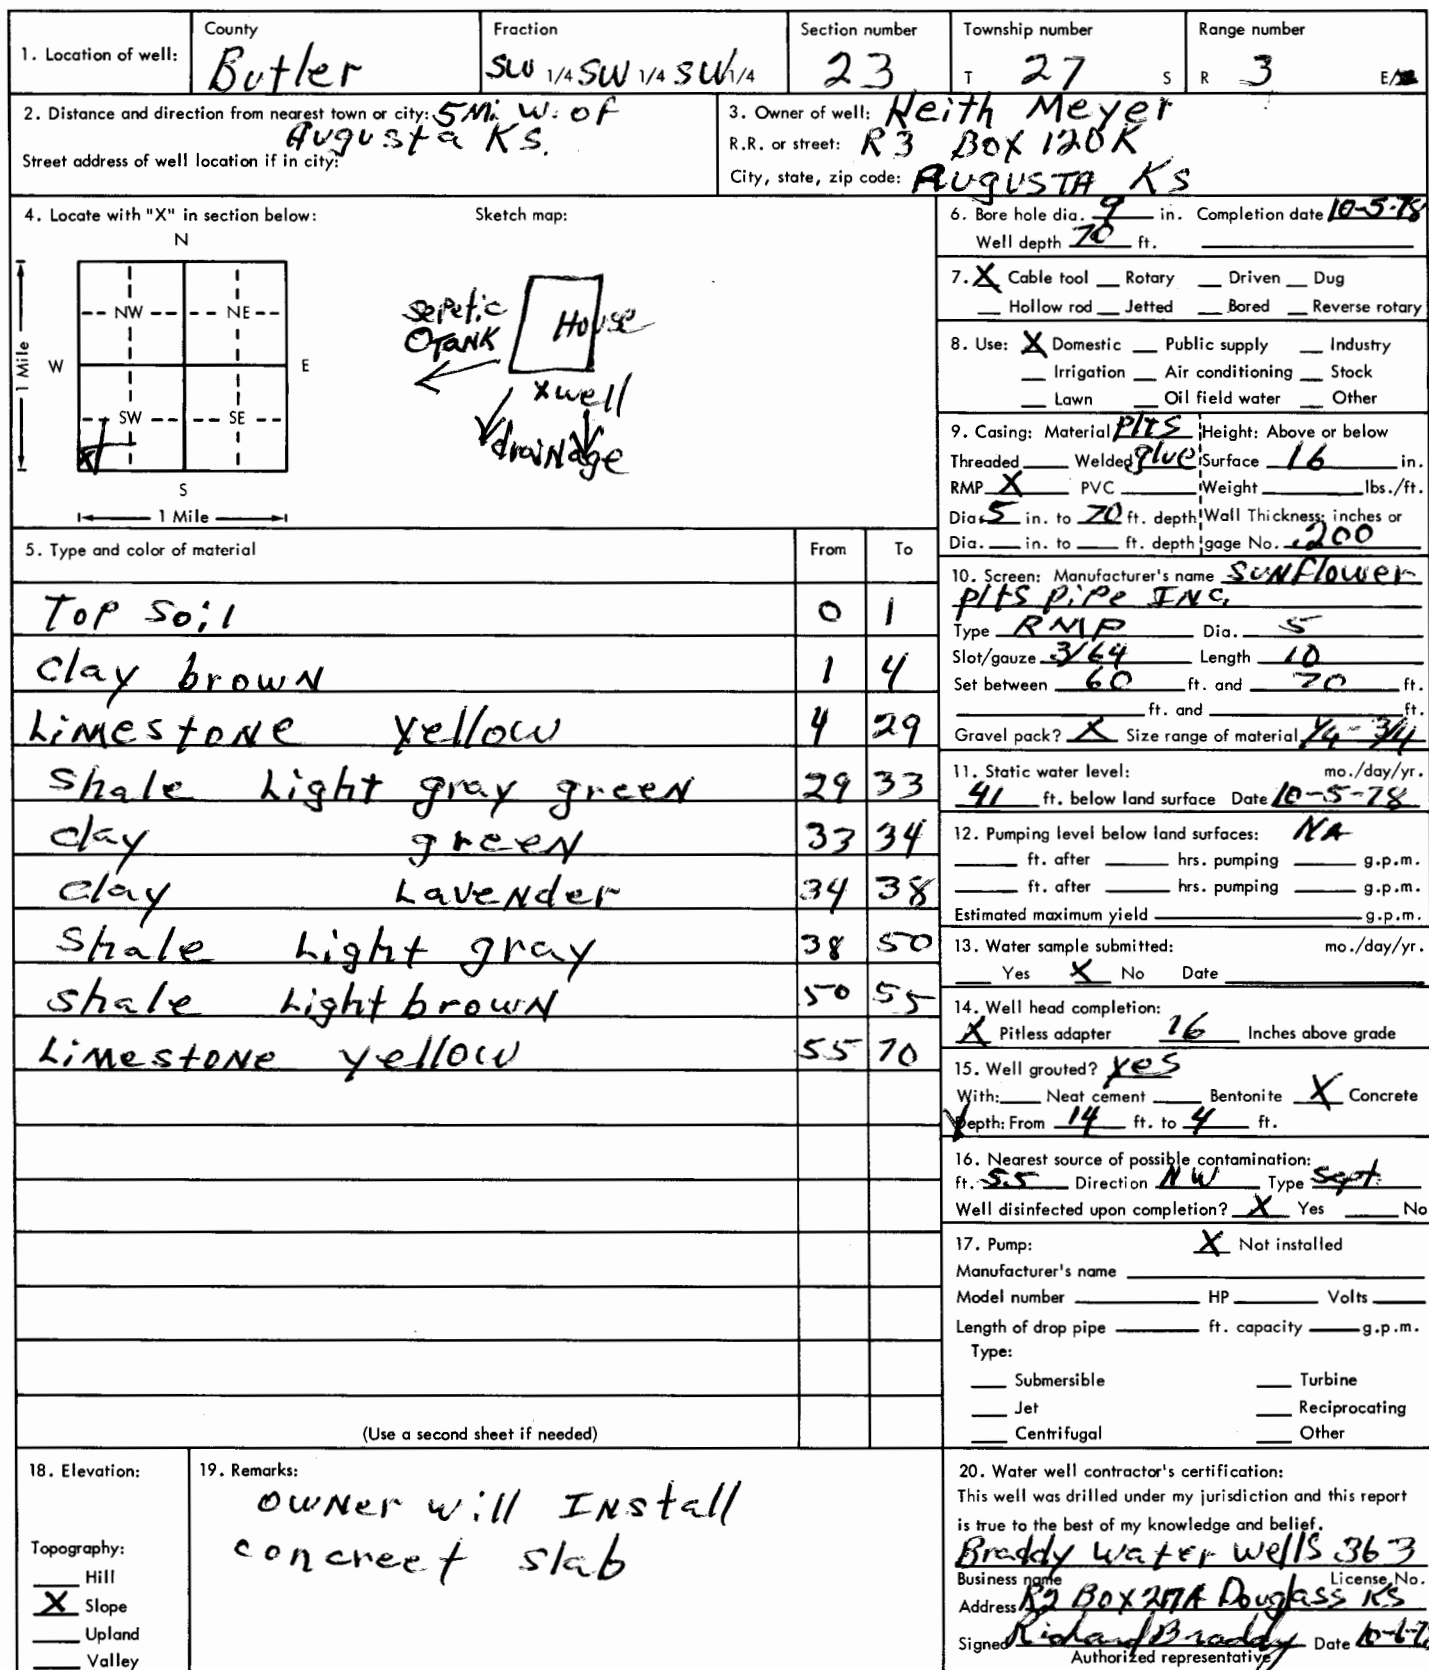 1. Location of well:
County
Butler
Fraction
SW 1/4 SW 1/4 SW 1/4
Section number
23
Township number
T 27 S
Range number
R 3 E/
2. Distance and direction from nearest town or city: 5 Mi. W. of
Augusta Ks.
Street address of well location if in city:
3. Owner of well: Keith Meyer
R.R. or street: R3 Box 120K
City, state, zip code: Augusta Ks
4. Locate with "X" in section below:
Sketch map:
N
NW NE
W E
SW SE
S
1 Mile
1 Mile
X
Sepetic
TANK
House
x well
drainage
5. Type and color of material From To
Top Soil 0 1
Clay brown 1 4
Limestone yellow 4 29
Shale Light gray green 29 33
Clay green 33 34
Clay Lavender 34 38
Shale Light gray 38 50
Shale Light brown 50 55
Limestone yellow 55 70
(Use a second sheet if needed)
6. Bore hole dia. 9 in. Completion date 10-5-78
Well depth 70 ft.
7. X Cable tool Rotary Driven Dug
Hollow rod Jetted Bored Reverse rotary
8. Use: X Domestic Public supply Industry
Irrigation Air conditioning Stock
Lawn Oil field water Other
9. Casing: Material plts Height: Above or below
Threaded Welded glue Surface 16 in.
RMP X PVC Weight lbs./ft.
Dia. 5 in. to 70 ft. depth Wall Thickness: inches or
Dia. in. to ft. depth gage No. .200
10. Screen: Manufacturer's name Sunflower
plts pipe INC.
Type RMP Dia. 5
Slot/gauze 3/64 Length 10
Set between 60 ft. and 70 ft.
ft. and ft.
Gravel pack? X Size range of material 1/4 - 3/4
11. Static water level: mo./day/yr.
41 ft. below land surface Date 10-5-78
12. Pumping level below land surfaces: NA
ft. after hrs. pumping g.p.m.
ft. after hrs. pumping g.p.m.
Estimated maximum yield g.p.m.
13. Water sample submitted: mo./day/yr.
Yes X No Date
14. Well head completion:
X Pitless adapter 16 Inches above grade
15. Well grouted? yes
With: Neat cement Bentonite X Concrete
Depth: From 14 ft. to 4 ft.
16. Nearest source of possible contamination:
ft. 55 Direction NW Type Sept
Well disinfected upon completion? X Yes No
17. Pump: X Not installed
Manufacturer's name
Model number HP Volts
Length of drop pipe ft. capacity g.p.m.
Type:
Submersible Turbine
Jet Reciprocating
Centrifugal Other
18. Elevation:
Topography:
Hill
X Slope
Upland
Valley
19. Remarks:
owner will Install
concreet slab
20. Water well contractor's certification:
This well was drilled under my jurisdiction and this report
is true to the best of my knowledge and belief.
Braddy Water Wells 363
Business name License No.
Address R2 Box 217A Douglass Ks
Signed Richard Braddy Date
Authorized representative